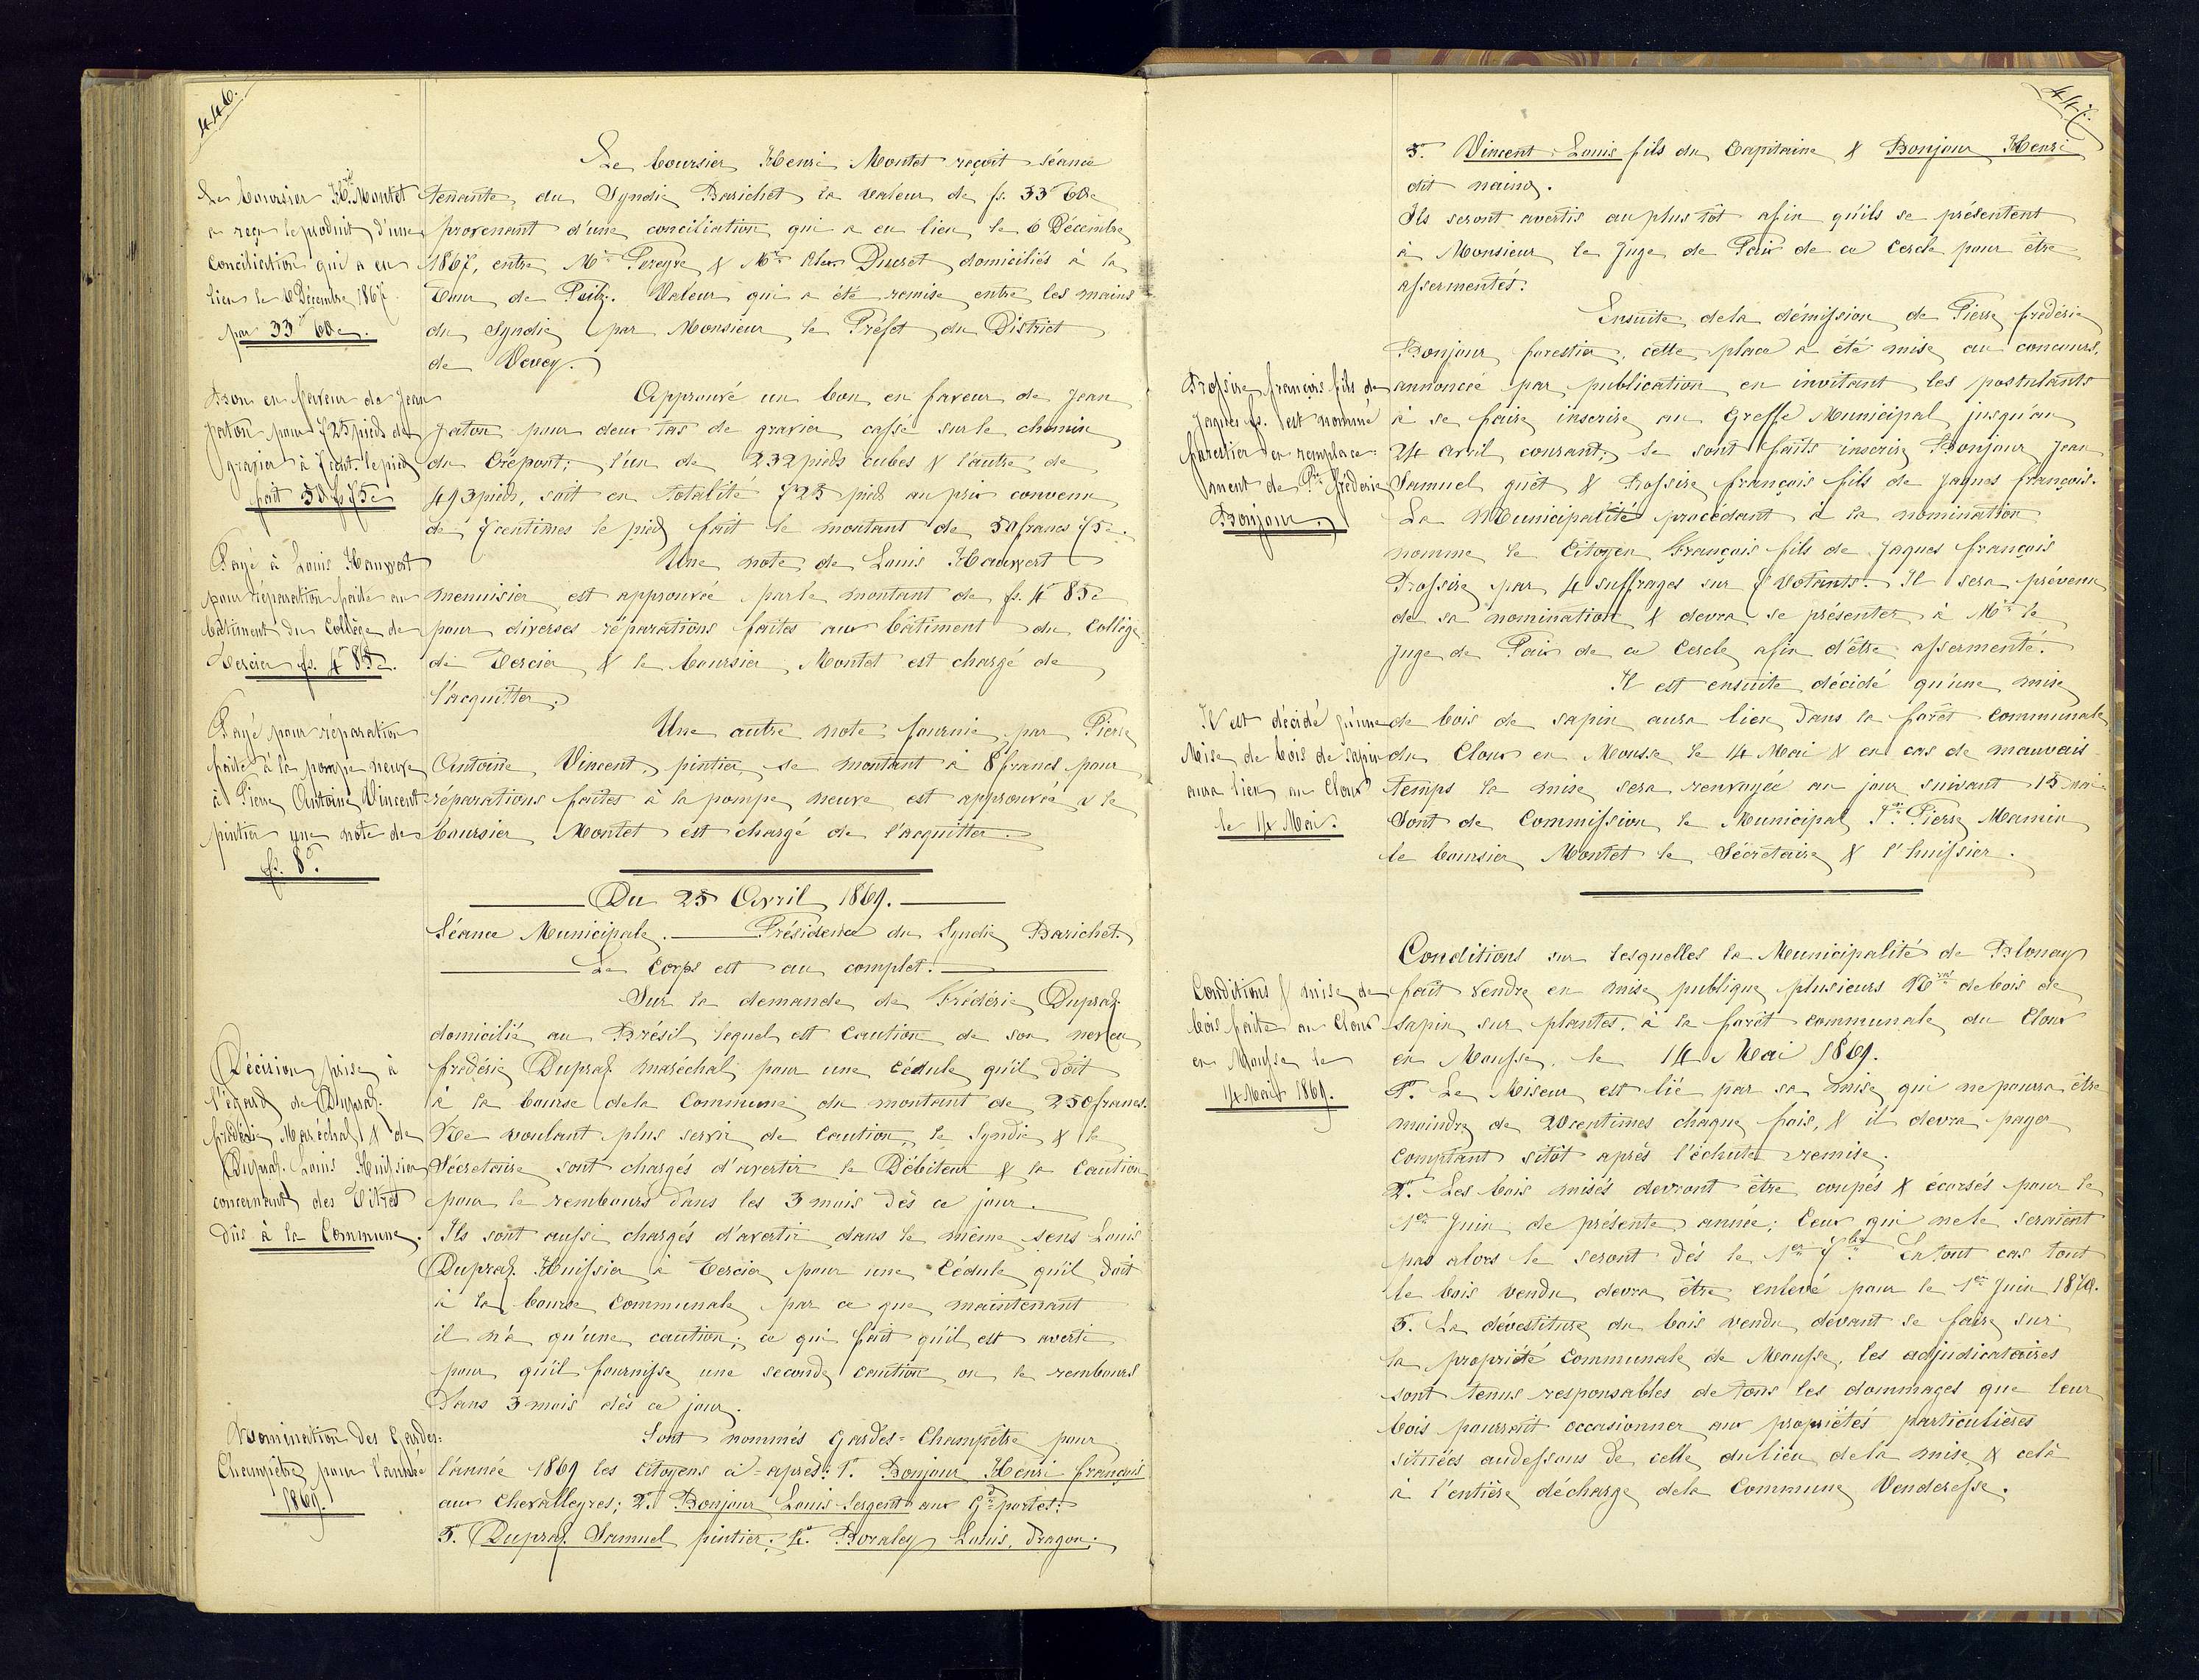 446.
Le boursier Henri Montet reçoit séance
tenante, du Syndic Barichet la valeur de fs. 33 60c
provenant d'une conciliation qui a eu lieu le 6 Décembre
1867, entre Mr. Pereyre & Mr. Alex. Ducret domiciliés à la
Tour de Peilz. Valeur qui a été remise entre les mains
du Syndic par Monsieur le Préfet du District
de Vevey.
Le boursier Hri. Montet
a reçu le produit d'une
Conciliation qui a eu
lieu le 6 Décembre 1867.
par 33 60c.
Approuvé un bon en faveur de Jean
Jaton pour deux tas de gravier cassé sur le chemin
du Crépont; l'un de 232 pieds cubes & l'autre de
493 pieds, soit en totalité 725 pieds au prix convenu
de 7 centimes le pied fait le montant de 50 francs 75c.
Bon en faveur de Jean
Jaton pour 725 pieds de
gravier à 7 cent. le pied
fait 50 fs 75c
Une note de Louis Hauwert
menuisier, est approuvée par le montant de fs. 4 85c
pour diverses réparations faites aux bâtiment du Collège
de Tercier & le boursier Montet est chargé de
l'acquitter.
Payé à Louis Hauwert
pour réparation faite au
bâtiment du Collège de
Tercier fs. 4 85c.
Une autre note fournie par Pierre
Antoine Vincent, pintier, se montant à 8 francs pour
réparations faites à la pompe neuve est approuvée & le
boursier Montet est chargé de l'acquitter.
Payé pour réparation
faite à la pompe neuve
à Pierre Antoine Vincent
pintier une note de
fs. 8.
Du 25 Avril 1869.
Séance Municipale. Présidence du Syndic Barichet.
Le Corps est au complet.
Sur la demande de Frédéric Dupraz
domicilié au Brésil lequel est Caution de son neveu
frédéric Dupraz maréchal pour une cédule qu'il doit
à la bourse de la Commune du montant de 250 francs.
Ne voulant plus servir de Caution, le Syndic & le
Sécretaire sont chargés d'avertir le Débiteur & la Caution
pour le rembours dans les 3 mois dès ce jour.
Ils sont aussi chargés d'avertir dans le même sens Louis
Dupraz Huissier à Tercier pour une Cédule qu'il doit
à la bourse Communale par ce que maintenant
il n'a qu'une caution; ce qui fait qu'il est averti
pour qu'il fournisse une seconde caution ou le rembours
Dans 3 mois dès ce jour.
Décision prise à
l'égard de Dupraz
frédéric Maréchal & de
Dupraz Louis Huissier
concernant des Titres
dûs à la Commune.
Sont nommés Gardes-Champêtre pour
l'année 1869 les citoyens ci-après: 1°. Bonjour Henri français
aux Chevalleyres; 2°. Bonjour Louis Sergent aux Gd. portes.
3°. Dupraz Samuel pintier; 4°. Boraley Louis, dragon;
Nomination des Gardes-
Champêtre pour l'année
1869.
447.
5°. Vincent Louis fils du Capitaine & Bonjour Henri
dit naine.
Ils seront avertis au plus tôt afin qu'ils se présentent
à Monsieur le Juge de Paix de ce Cercle pour être
assermentés.
Ensuite de la démission de Pierre frédéric
Bonjour forestier, cette place a été mise au concours,
annoncée par publication en invitant les postulants
à se faire inscrire au Greffe Municipal jusqu'au
24 Avril courant; se sont faits inscrire Bonjour Jean
Samuel guêt & Brossire françois fils de Jaques françois.
La Municipalité procédant à la nomination
nomme le Citoyen François fils de Jaques françois
Brossire par 4 suffrages sur 7 votants. Il sera prévenu
de sa nomination & devra se présenter à Mr. le
Juge de Paix de ce Cercle afin d'être assermenté.
Brossire françois fils de
Jaques fs. est nommé
forestier en remplace-
ment de Pre. frédéric
Bonjour.
Il est ensuite décidé qu'une mise
de bois de sapin aura lieu dans la forêt communale
du Cloux en Mousse le 14 Mai & en cas de mauvais
temps la mise sera renvoyée au jour suivant 15 mai
Sont de Commission le Municipal Jn. Pierre Mamin
le boursier Montet le Sécretaire & l'huissier.
Il est décidé qu'une
Mise de bois de Sapin
aura lieu au Cloux
le 14 Mai.
Conditions sur lesquelles la Municipalité de Blonay
fait vendre en mise publique plusieurs Nros de bois de
sapin sur plantes, à la forêt communale du Cloux
en Mousse, le 14 Mai 1869.
1°. Le Miseur est lié par sa mise qui ne pourra être
moindre de 20 centimes chaque fois, & il devra payer
comptant sitôt après l'échute remise.
2°. Les bois misés devront être coupés & écorsés pour le
1er Juin de présente année; Ceux qui ne le seraient
pas alors le seront dès le 1er 7bre En tout cas tout
le bois vendu devra être enlevé pour le 1er Juin 1870.
3°. La dévestiture du bois vendu dévant se faire sur
la propriété Communale de Mousse, les adjudicataires
sont tenus responsables de tous les dommages que leur
bois pourrait occasionner aux propriétés particulières
situées audessous de celle du lieu de la mise & celà
à l'entière décharge de la Commune Venderesse.
Conditions & mise de
bois faite au Cloux
en Mousse le
14 Mai 1869.